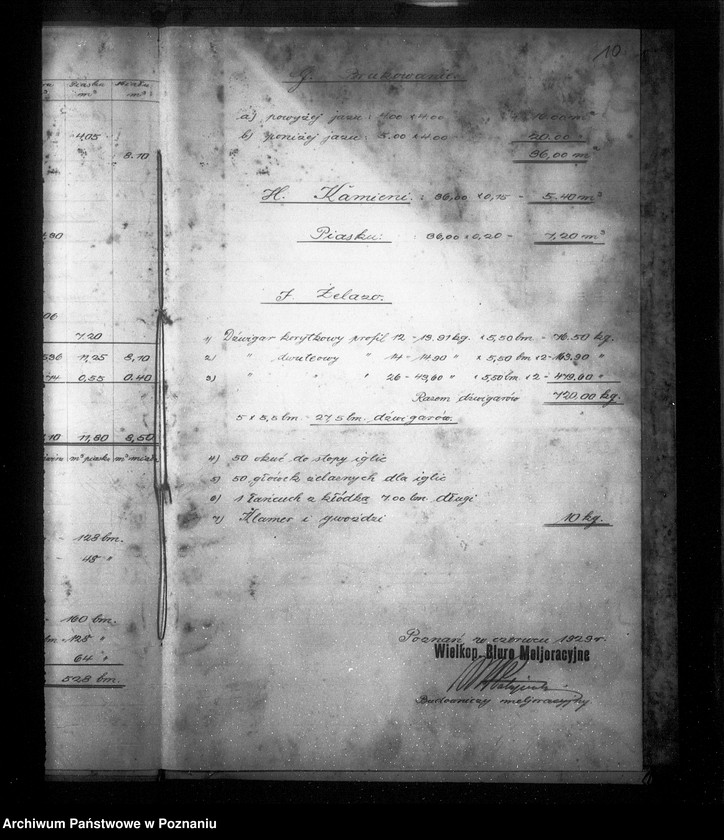 Piasku
m³
m³
4.05
8.10
7.20
11,25 8,10
0,55 0.40
11,80 8,50
m³ piasku m³
128 bm.
48 "
160 bm.
128 "
64 "
528 bm.
10
G. Brukowanie
a) powyżej jazu : 4.00 x 4.00 16.00 m²
b) poniżej jazu : 5.00 x 4.00 20.00 "
36,00 m²
H. Kamieni : 36,00 x 0,15 - 5.40 m³
Piasku : 36,00 x 0,20 - 7,20 m³
J Żelazo.
1) Dźwigar korytkowy profil 12 - 13.91 kg. x 5,50 bm - 76.50 kg.
2) " dwuteowy " 14 - 14.90 " x 5,50 bm x 2 - 163.90 "
3) " " " 26 - 43,60 " x 5,50 bm. x 2 - 479,60 "
Razem dźwigarów 720,00 kg.
5 x 5,5 bm - 27,5 bm. dźwigarów.
4) 50 okuć do stopy iglic
5) 50 główek żelaznych dla iglic
6) 1 łańcuch z kłódką 7.00 bm. długi
7) Klamer i gwoździ 10 kg.
Poznań, w czerwcu 1929 r.
Wielkop. Biuro Meljoracyjne
Budowniczy meljoracyjny
Archiwum Państwowe w Poznaniu